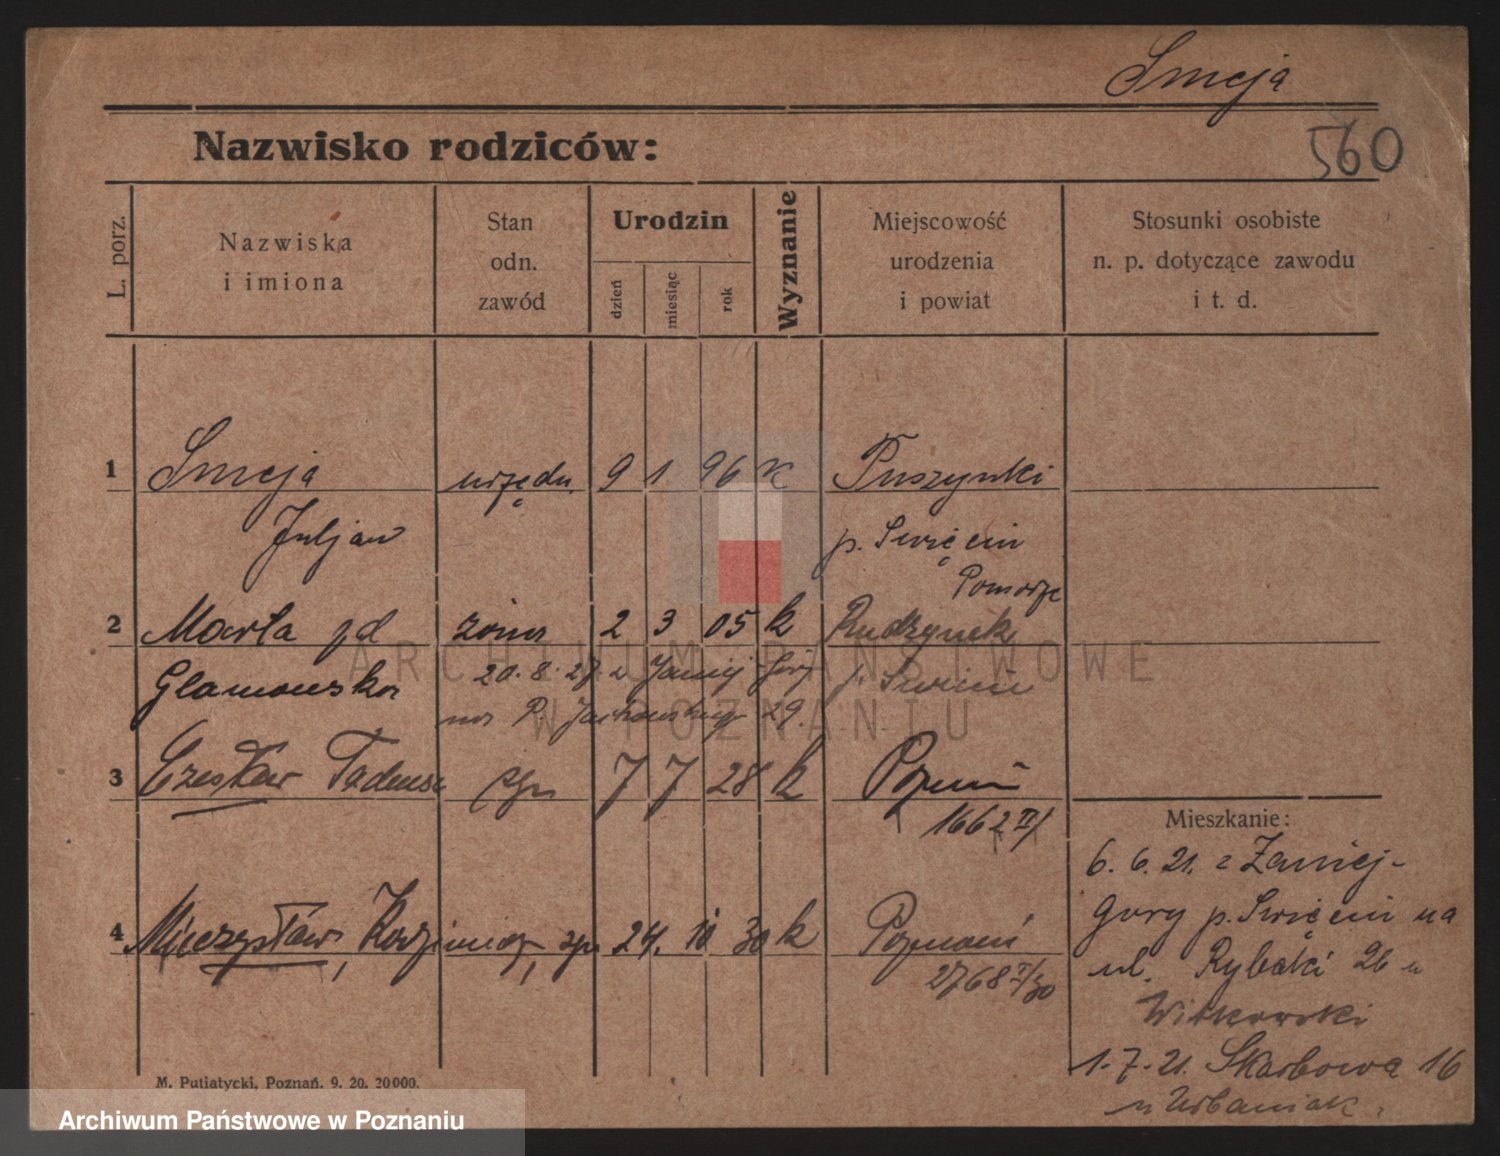 Smeja
560
Nazwisko rodziców:
L. porz.
Nazwiska
i imiona
Stan
odn.
zawód
Urodzin
dzień
miesiąc
rok
Wyznanie
Miejscowość
urodzenia
i powiat
Stosunki osobiste
n. p. dotyczące zawodu
i t. d.
1 Smeja urzędn. 9 1 96 k
Juljan p. Święcin
Pomorze
2 Marta żona 2 3 05 k
20.8.27 z
29.
3 Czesław Tadeusz syn 7 7 28 k Poznań
1662 II/
4 Mieczysław, Kazimierz, syn 24. 10 30 k Poznań
2768 I/30
Mieszkanie:
6. 6. 21. z
Góry p. Święcin na
ul. Rybaki 26 u
Witkowski
1.7.21. Skarbowa 16
u Urbaniak.
M. Putiatycki, Poznań. 9. 20. 20000.
ARCHIWUM PAŃSTWOWE
W POZNANIU
Archiwum Państwowe w Poznaniu